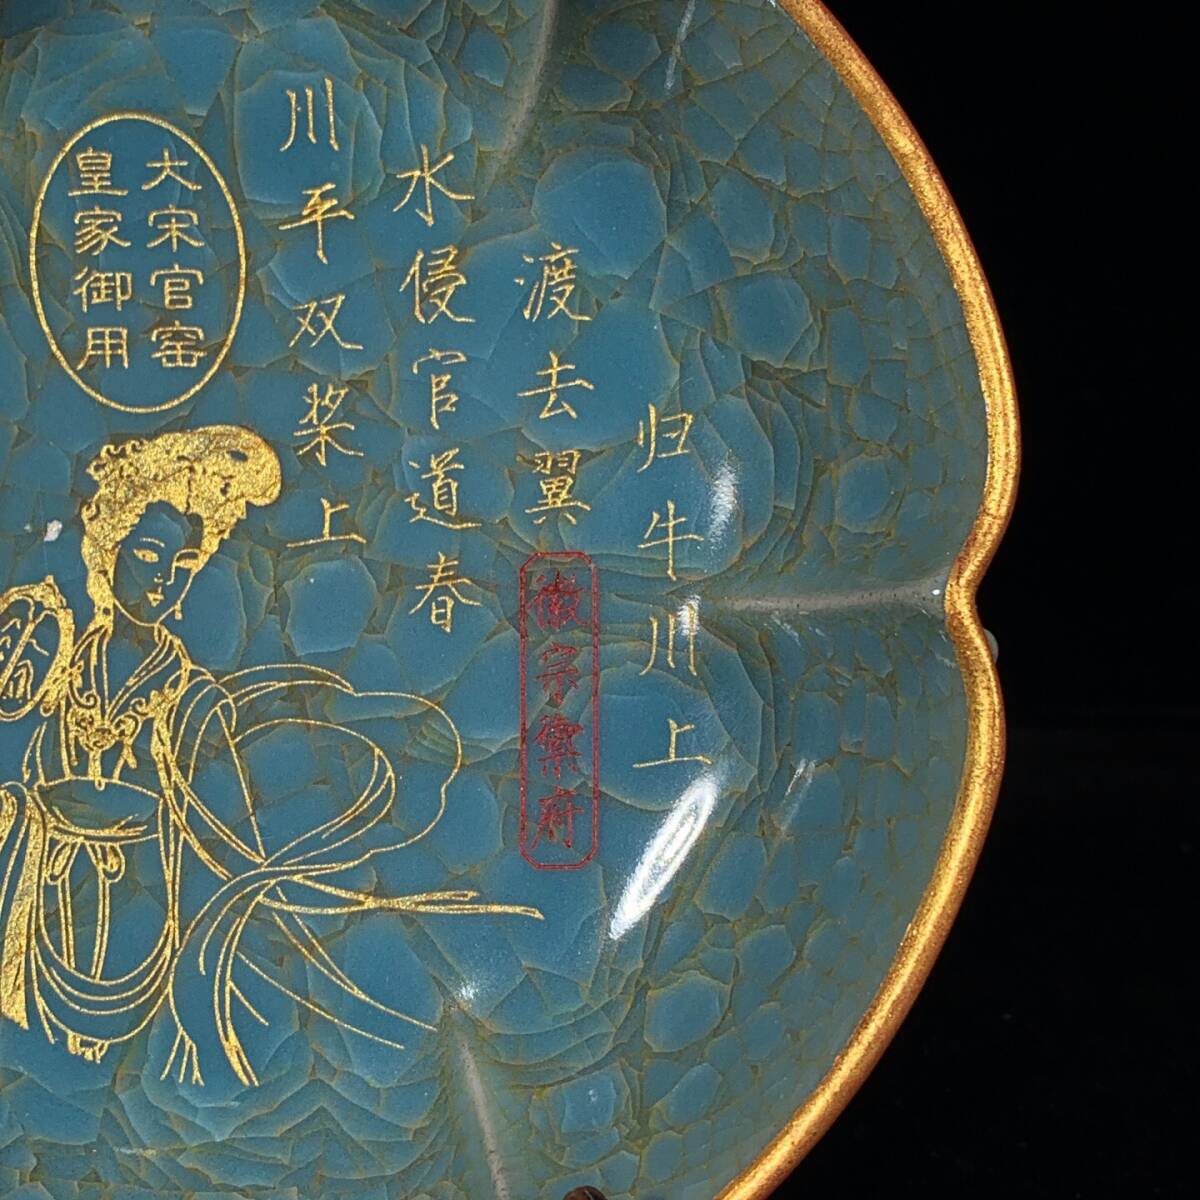 归牛川上
渡去翼
水侵官道春
川平双桨上
大宋官窑
皇家御用
徽宗御府